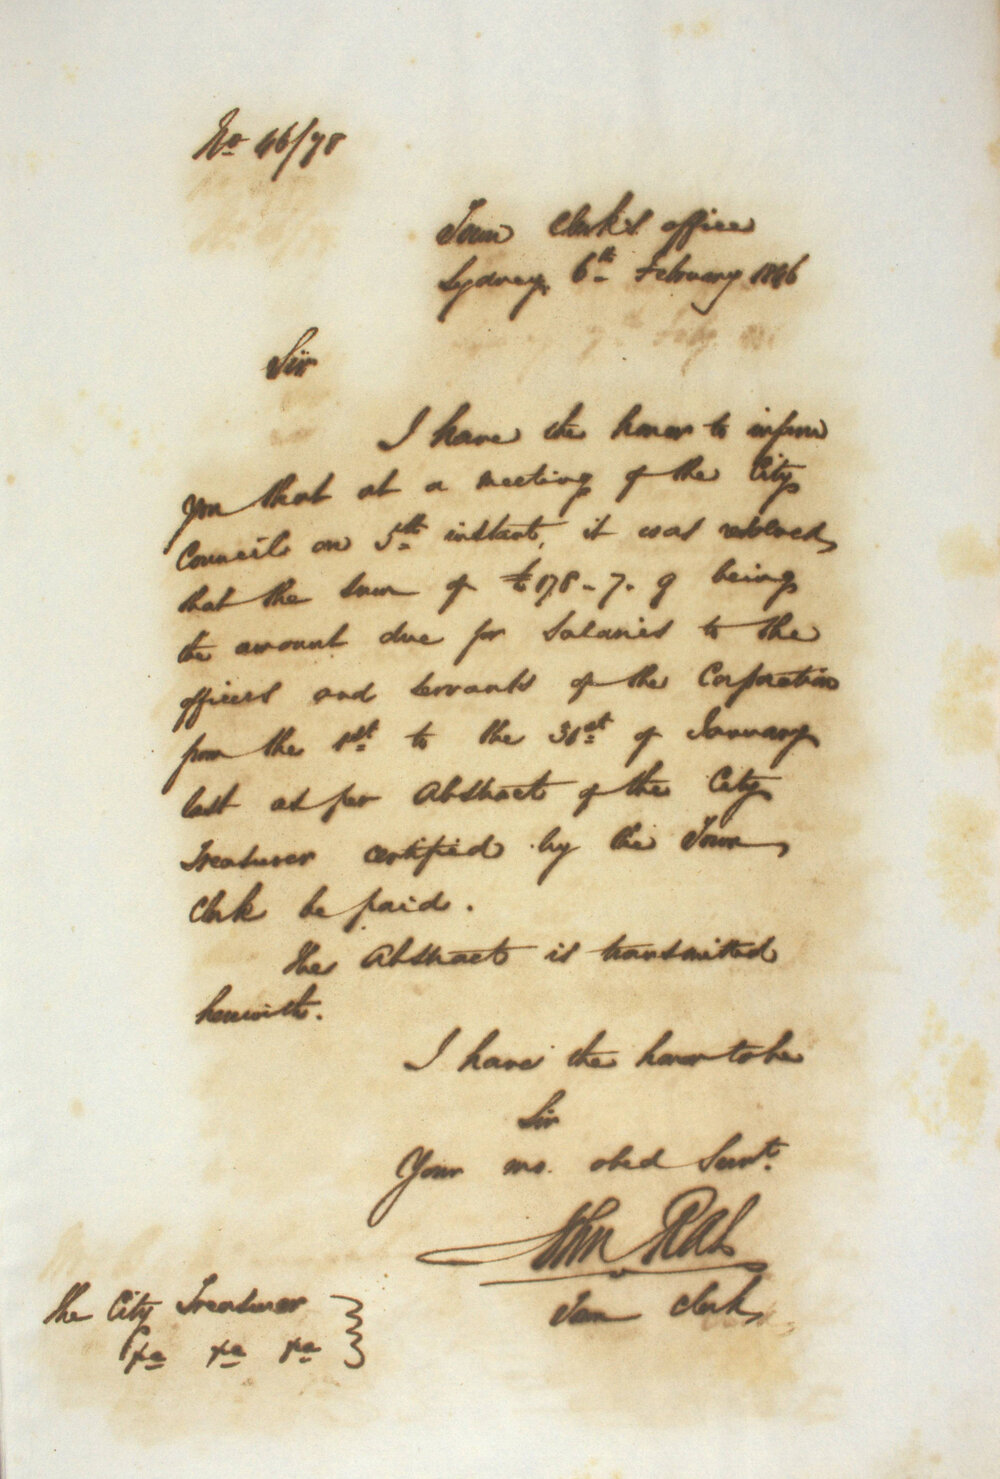 No 46/78
Town Clerk's office
Sydney 6th February 1846
Sir
I have the honor to inform
you that at a meeting of the City
Council on 5th instant, it was resolved
that the sum of £178-7.9 being
the amount due for Salaries to the
officers and servants of the Corporation
from the 1st to the 31st of January
last as per Abstract of the City
Treasurer certified by the Town
Clerk be paid.
The Abstract is transmitted
herewith.
I have the honor to be
Sir
Your mo. obed Servt.
John Rae
Town Clerk
The City Treasurer
&c &c &c